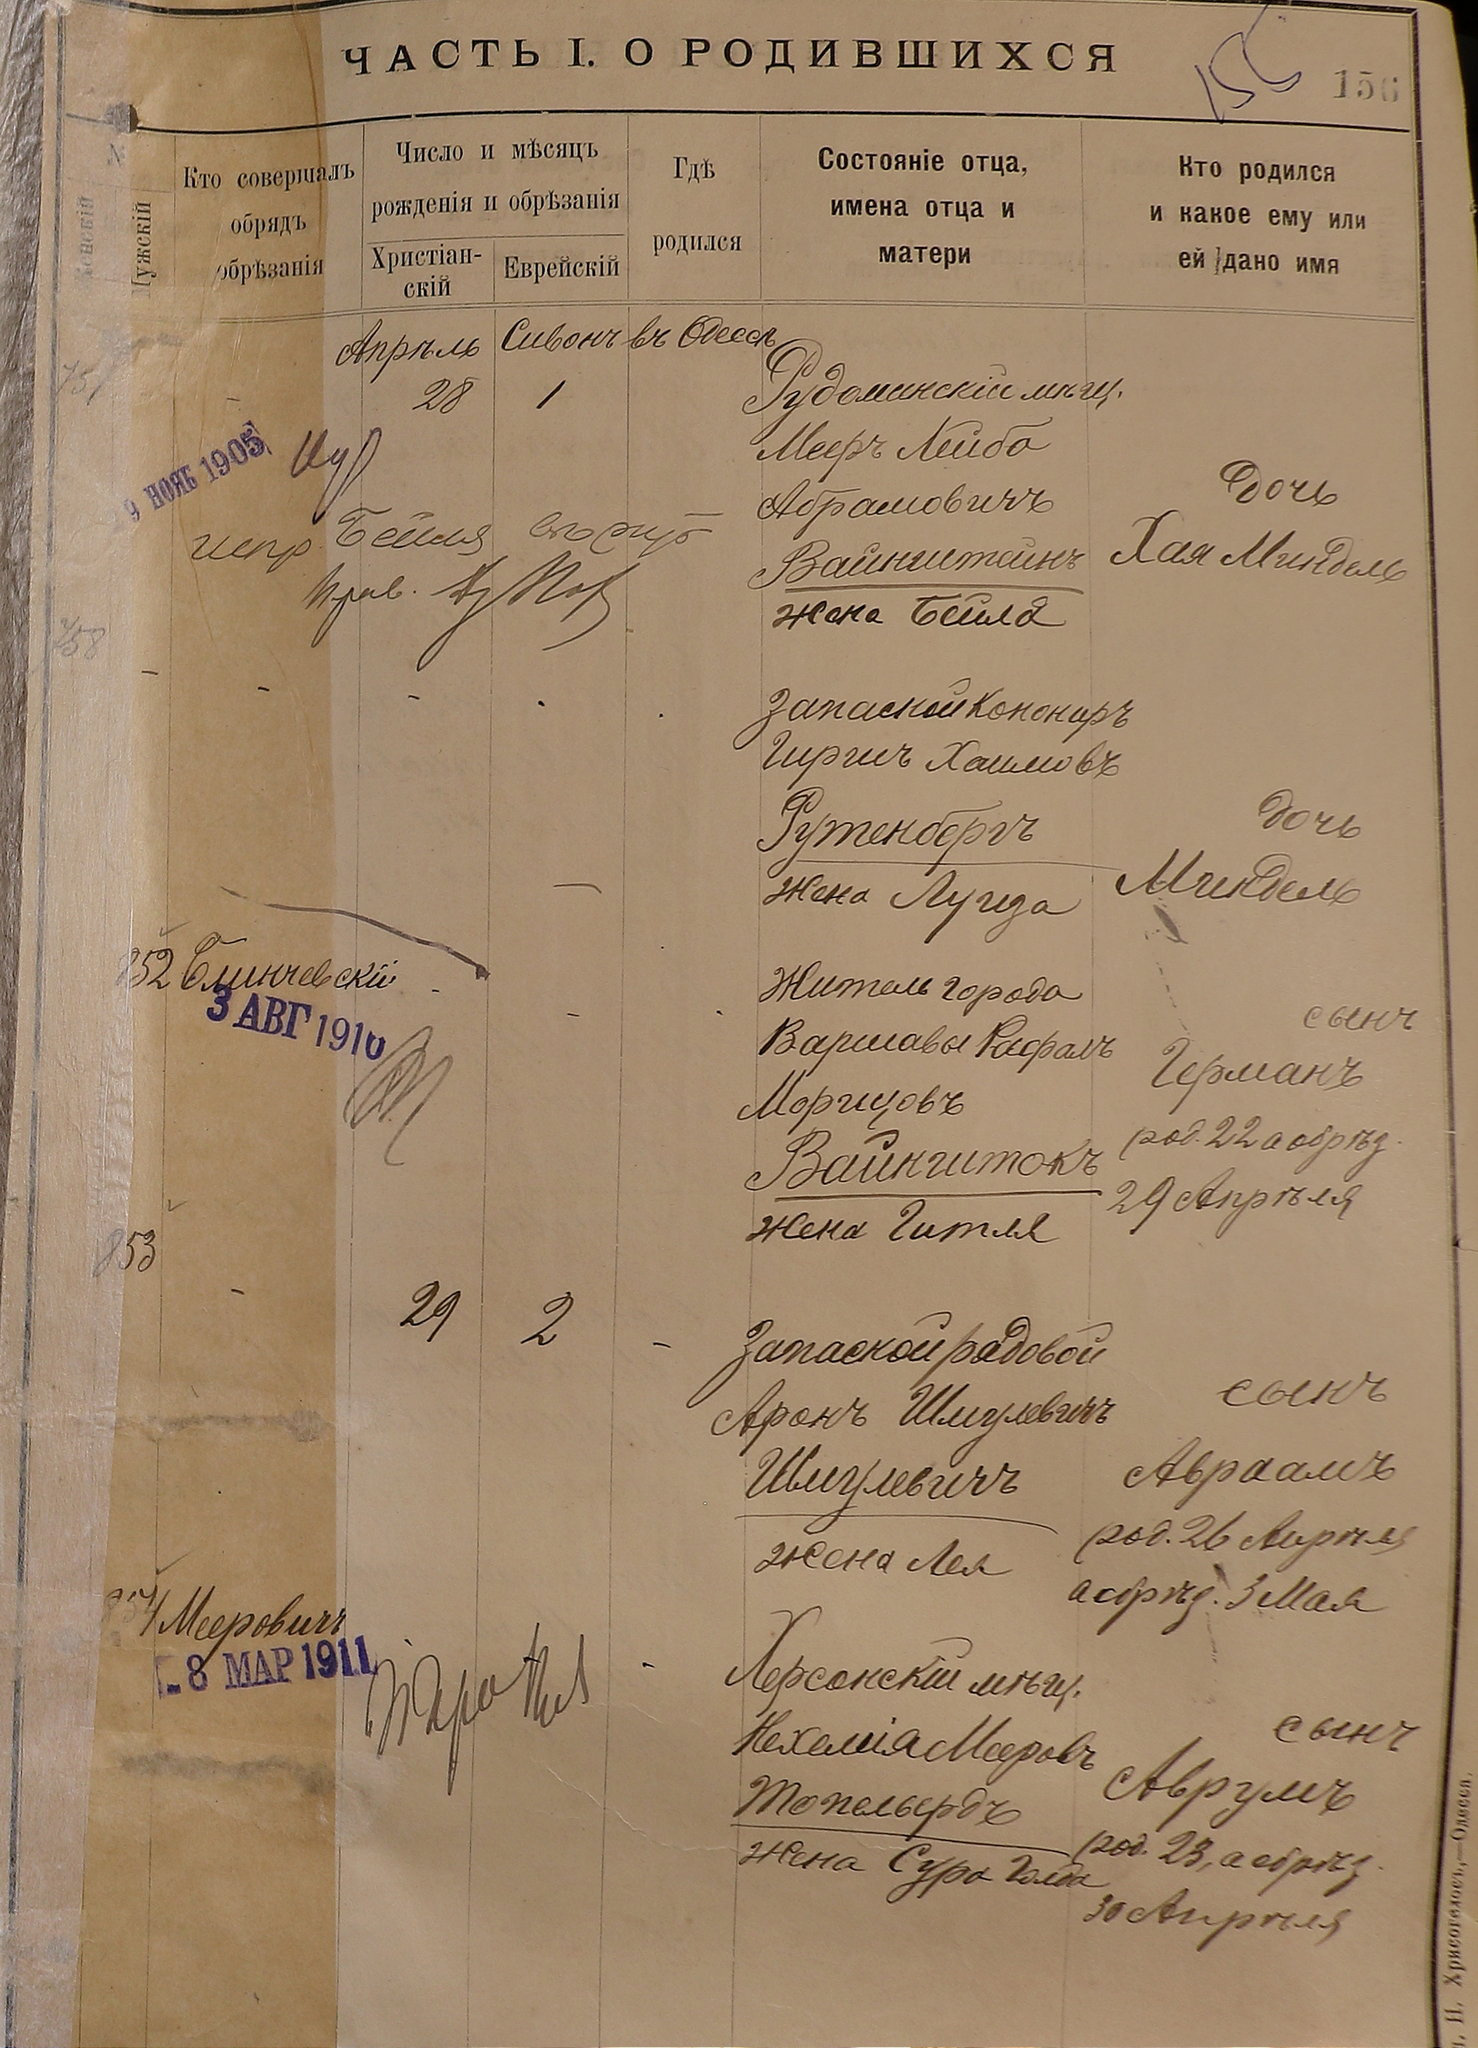 ЧАСТЬ I. О РОДИВШИХСЯ
156
156
№
Женскій
Мужскій
Кто совершалъ
обрядъ
обрѣзанія
Число и мѣсяцъ
рожденія и обрѣзанія
Христіан-
скій
Еврейскій
Гдѣ
родился
Состояніе отца,
имена отца и
матери
Кто родился
и какое ему или
ей дано имя
Апрѣль Сивонъ въ Одессѣ
757 - 28 1
Рудоминскій мѣщ.
Мееръ Лейба
Абрамовичъ
Вайнштейнъ
жена Бейла
дочь
Хая Миндель
9 НОЯБ 1905
испр Бейля
758 - - - . .
Запаснойканониръ
Гиршъ Хаимовъ
Рутенбергъ
жена Луиза
дочь
Миндель
852 Блинчевскій - -
3 АВГ 1910
Житель города
Варшавы Рафалъ
Морицовъ
Вайнштокъ
жена Гитля
сынъ
Германъ
род. 22 а обрѣз.
29 Апрѣля
853 - 29 2 -
Запаснойрядовой
Аронъ Шмулевичъ
Шмулевичъ
жена Лея
сынъ
Авраамъ
род. 26 Апрѣля
а обрѣз. 3 Мая
854 Мееровичъ -
- 8 МАР 1911
Херсонскій мѣщ.
Нехемія Мееровъ
Топельбердъ
жена Сура Голда
сынъ
Аврумъ
род. 23, а обрѣз.
30 Апрѣля
П. Хрисогелосъ,—Одесса.